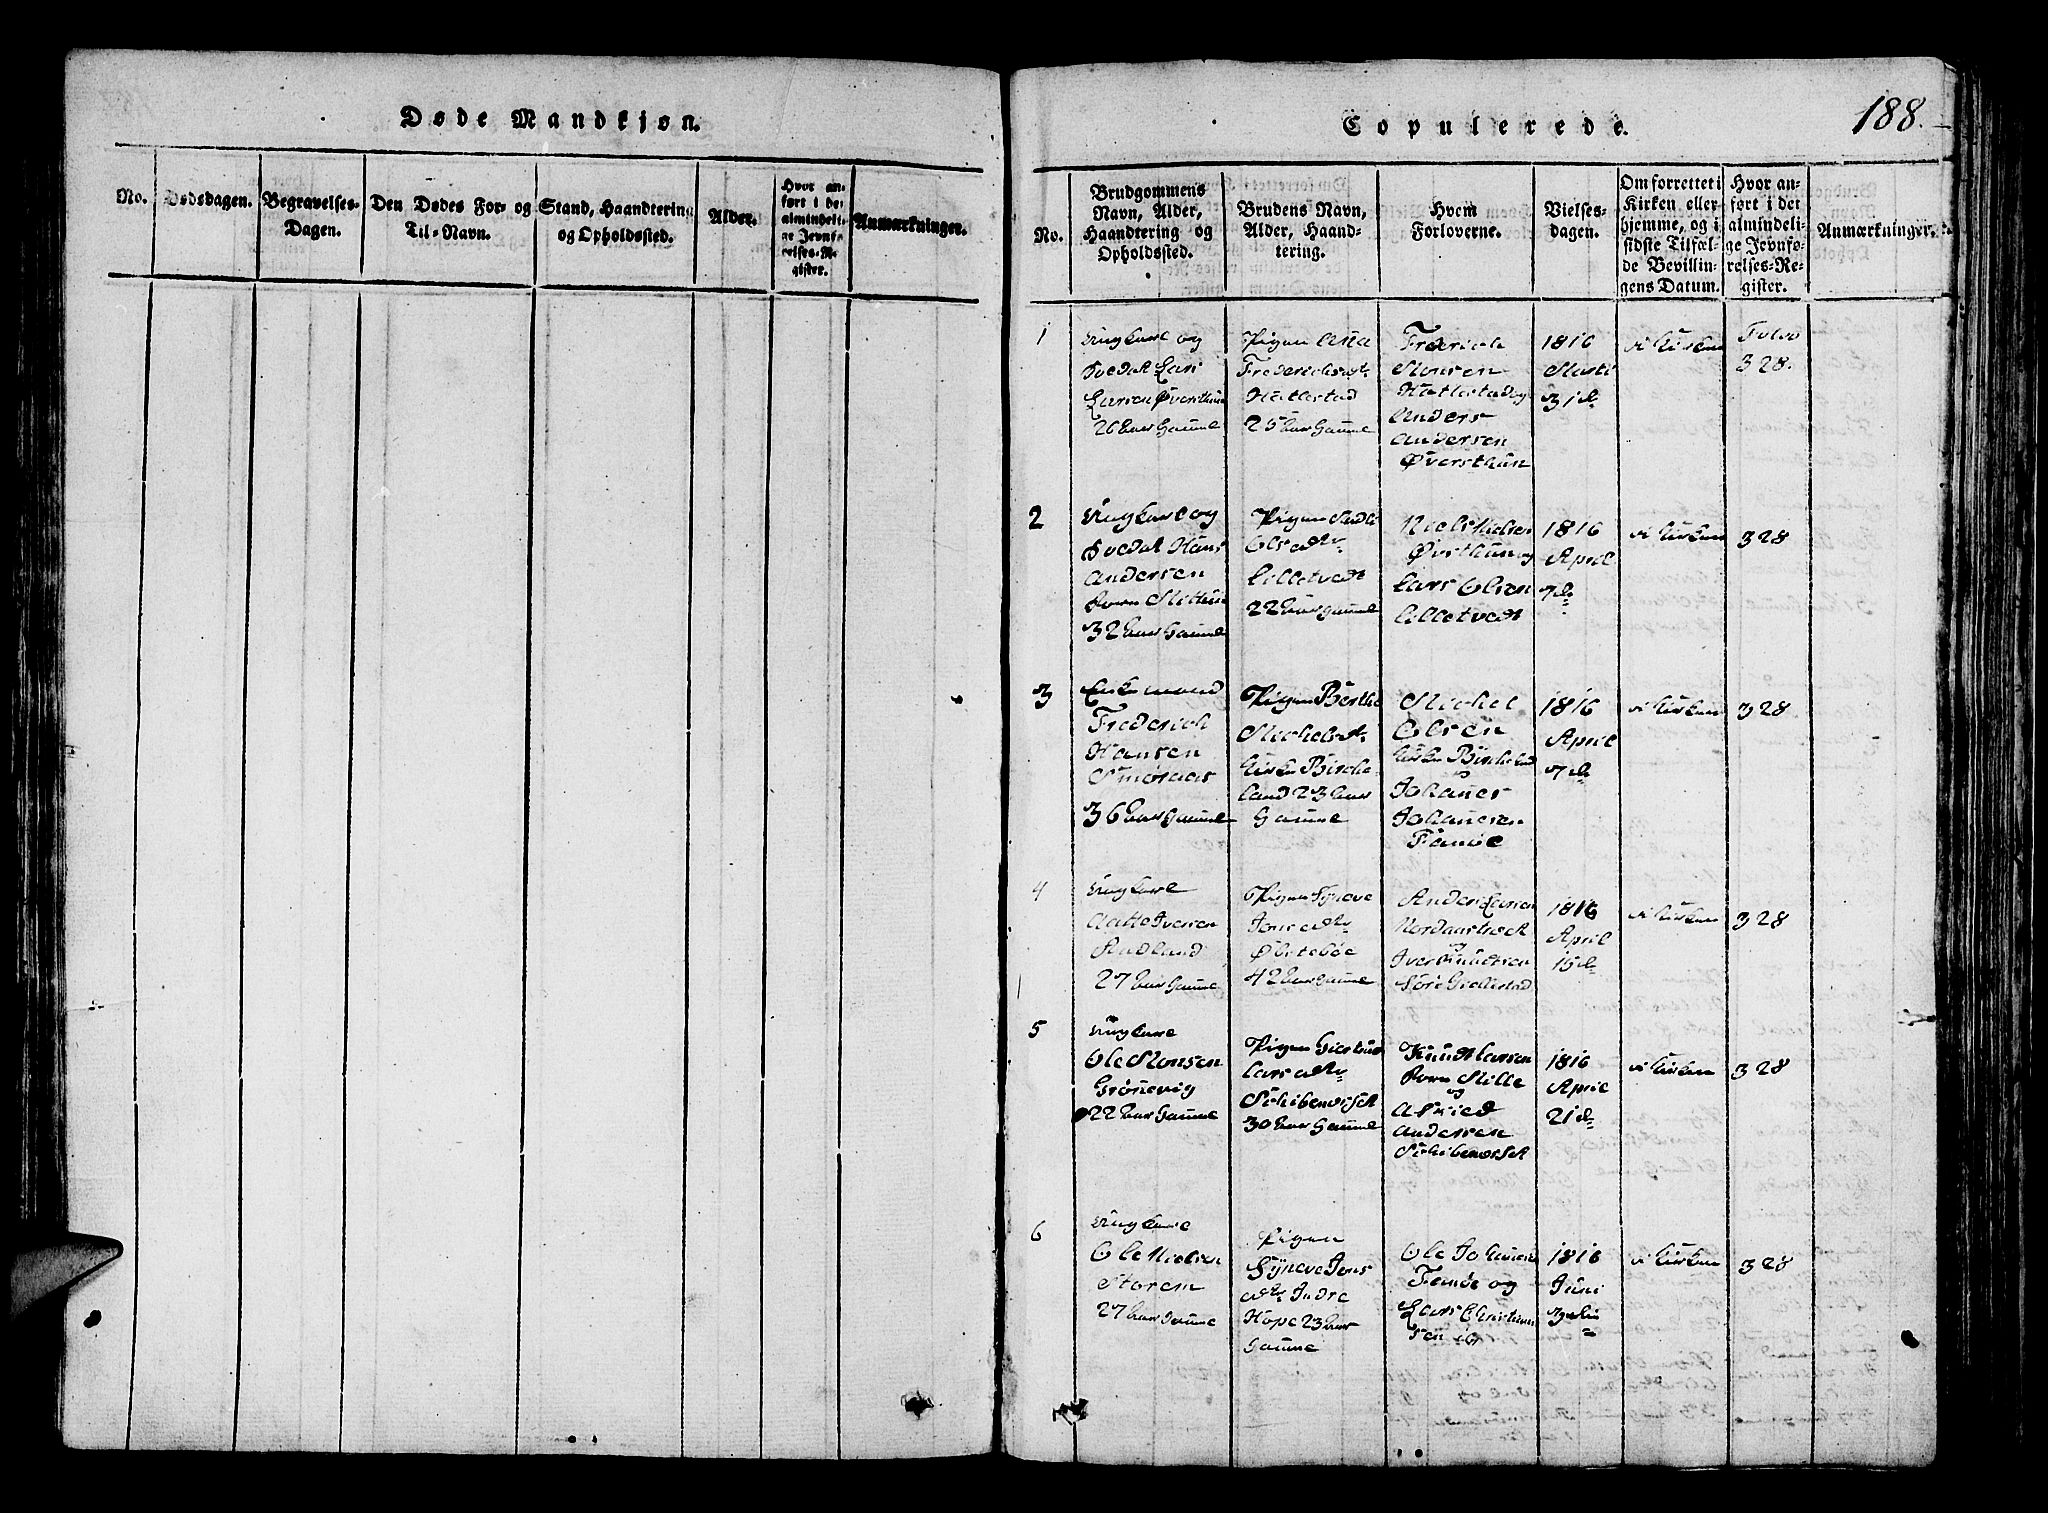 Døde Mandkjøn.
No.
Dødsdagen.
Begravelses-
Dagen.
Den Dødes For- og
Til-Navn.
Stand, Haandtering
og Opholdssted.
Alder.
Hvor an-
ført i det
almindeli-
ge Jevnfø-
relses-Re-
gister.
Anmærkninger.
Copulerede.
188.
No.
Brudgommens
Navn, Alder,
Haandtering og
Opholdssted.
Brudens Navn,
Alder, Haand-
tering.
Hvem
Forloverne.
Vielses-
dagen.
Om forrettet i
Kirken eller
hjemme, og i
sidste Tilfæl-
de Bevillin-
gens Datum.
Hvor an-
ført i det
almindeli-
ge Jevnfø-
relses-Re-
gister.
Anmærkninger.
1
Ungkarl og
Svedat Lars
Larsen Øversthun
26 Aar Gamle
Pigen Anna
Frederichsdtr
Hatlestad
25 Aar Gamle
Frederich
Monsen
Hatlestad og
Anders
Andersen
Øversthun
1816
Marti
31 d.
i Kirken
Folio
328.
2
Ungkarl og
Svedat Hans
Andersen
32 Aar Gamle
Pigen
Olsadtr
Lilletvedt
22 Aar gamle
Niels Nielsen
Øvsthun og
Lars Olsen
Lilletvedt
1816
April
7 d.
i Kirken
328
3
Enkemand
Frederich
Hansen
Smøraas
36 Aar Gamle
Pigen Berthe
Michelsdtr
Kirke Birche-
land 23 Aar
Gamle
Michel
Olsen
Kirke Bircheland
og
Johanes
Johanesen
Famøe
1816
April
7 d.
i Kirken
328
4
Ungkarl
Aatte Iversen
Sandland
27 Aar Gamle
Pigen Syneve
Jonsadtr
Øvrebøe
42 Aar Gamle
Anders Larsen
og
Iver Knudtsen
1816
April
15 d.
i Kirken
328
5
Ungkarl
Ole Monsen
Grønevig
22 Aar Gamle
Pigen Giertrud
Larsadtr
Schibenæsset
30 Aar Gamle
Knudt Larsen
og
Andersen
Schibenæsset
1816
April
21 d.
i Kirken
328
6
Ungkarl
Ole Nielsen
Storem
27 Aar Gamle
Pigen
Syneve Jons
adtr Indre
Hope 23 Aar
Gamle
Ole Johanesen
Famøe og
Lars Christian
sen
1816
Juni
3die
i Kirken
328